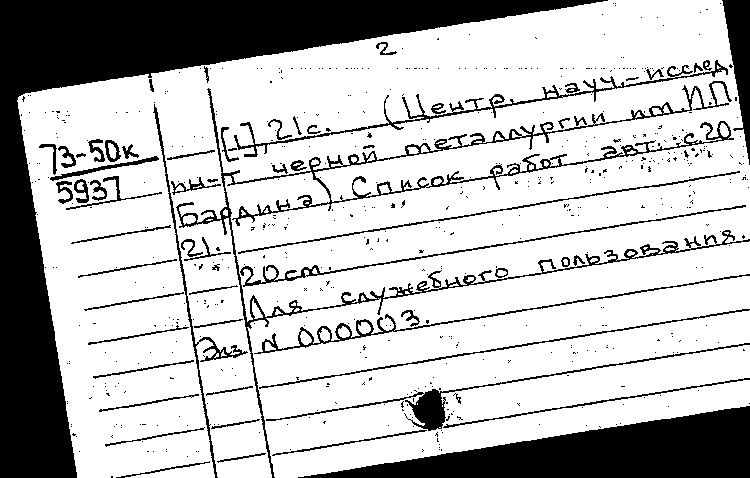 2
73-50к
5937
[1], 21с. (Центр. науч.-исслед.
ин-т черной металлургии им. И.П.
Бардина). Список работ авт. с.20-
21.
20 cm.
Для служебного пользования.
Экз N 000003.